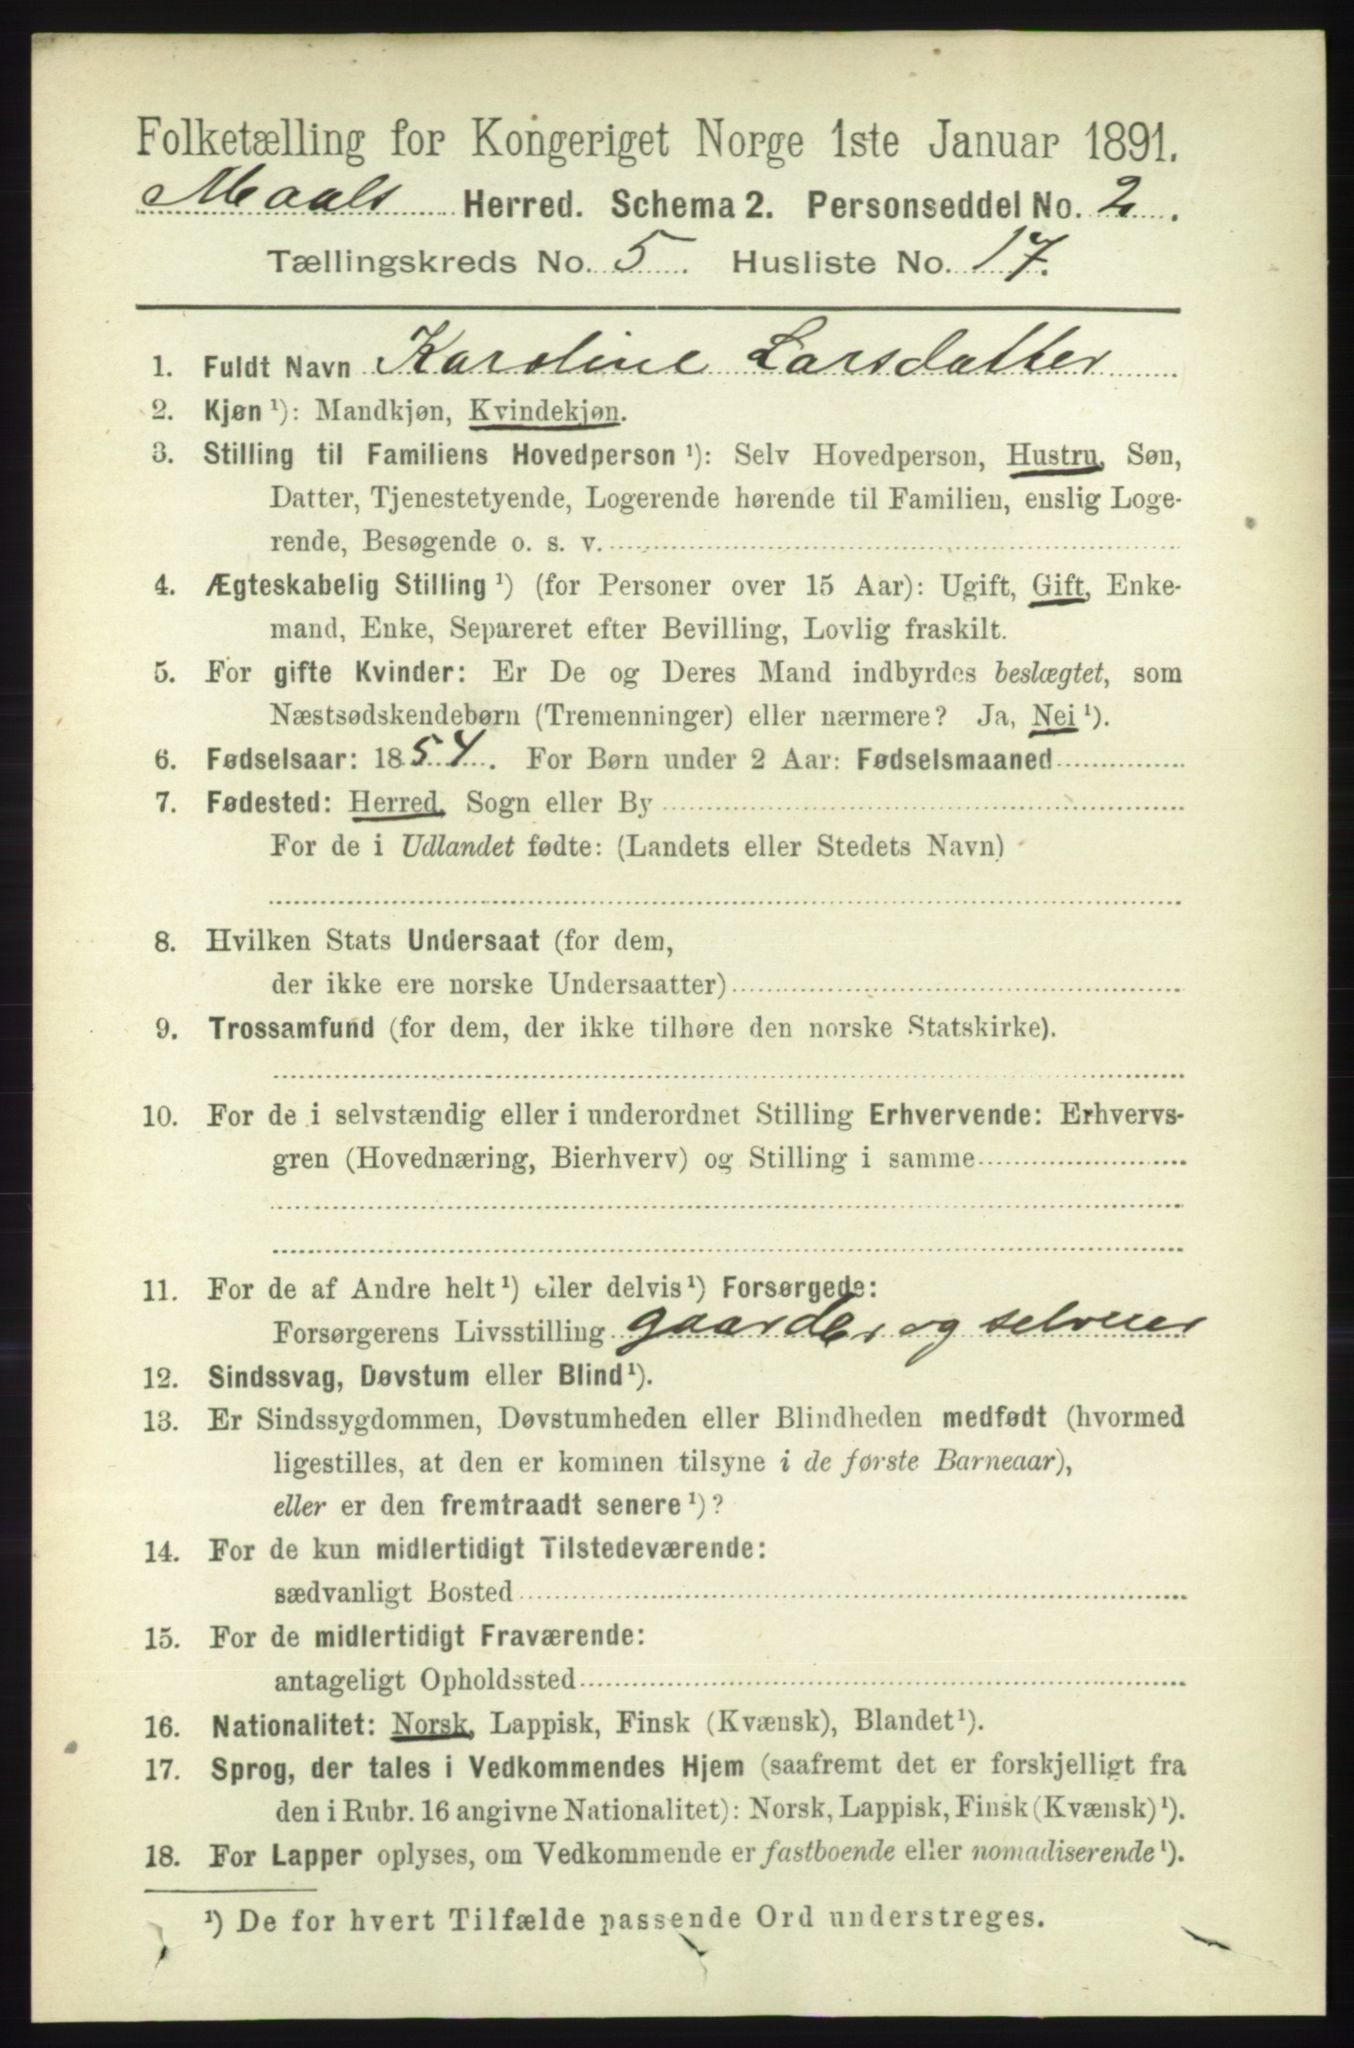 Folketælling for Kongeriget Norge 1ste Januar 1891.
Maals Herred. Schema 2. Personseddel No. 2.
Tællingskreds No. 5. Husliste No. 17.
1. Fuldt Navn Karoline Larsdatter
2. Kjøn ¹): Mandkjøn, Kvindekjøn.
3. Stilling til Familiens Hovedperson ¹): Selv Hovedperson, Hustru, Søn,
Datter, Tjenestetyende, Logerende hørende til Familien, enslig Loge-
rende, Besøgende o. s. v.
4. Ægteskabelig Stilling ¹) (for Personer over 15 Aar): Ugift, Gift, Enke-
mand, Enke, Separeret efter Bevilling, Lovlig fraskilt.
5. For gifte Kvinder: Er De og Deres Mand indbyrdes beslægtet, som
Næstsødskendebørn (Tremenninger) eller nærmere? Ja, Nei ¹).
6. Fødselsaar: 1854. For Børn under 2 Aar: Fødselsmaaned
7. Fødested: Herred, Sogn eller By
For de i Udlandet fødte: (Landets eller Stedets Navn)
8. Hvilken Stats Undersaat (for dem,
der ikke ere norske Undersaatter)
9. Trossamfund (for dem, der ikke tilhøre den norske Statskirke).
10. For de i selvstændig eller i underordnet Stilling Erhvervende: Erhvervs-
gren (Hovednæring, Bierhverv) og Stilling i samme
11. For de af Andre helt ¹) eller delvis ¹) Forsørgede:
Forsørgerens Livsstilling gaardbr og selveier
12. Sindssvag, Døvstum eller Blind ¹).
13. Er Sindssygdommen, Døvstumheden eller Blindheden medfødt (hvormed
ligestilles, at den er kommen tilsyne i de første Barneaar),
eller er den fremtraadt senere ¹)?
14. For de kun midlertidigt Tilstedeværende:
sædvanligt Bosted
15. For de midlertidigt Fraværende:
antageligt Opholdssted
16. Nationalitet: Norsk, Lappisk, Finsk (Kvænsk), Blandet ¹).
17. Sprog, der tales i Vedkommendes Hjem (saafremt det er forskjelligt fra
den i Rubr. 16 angivne Nationalitet): Norsk, Lappisk, Finsk (Kvænsk) ¹).
18. For Lapper oplyses, om Vedkommende er fastboende eller nomadiserende ¹).
¹) De for hvert Tilfælde passende Ord understreges.